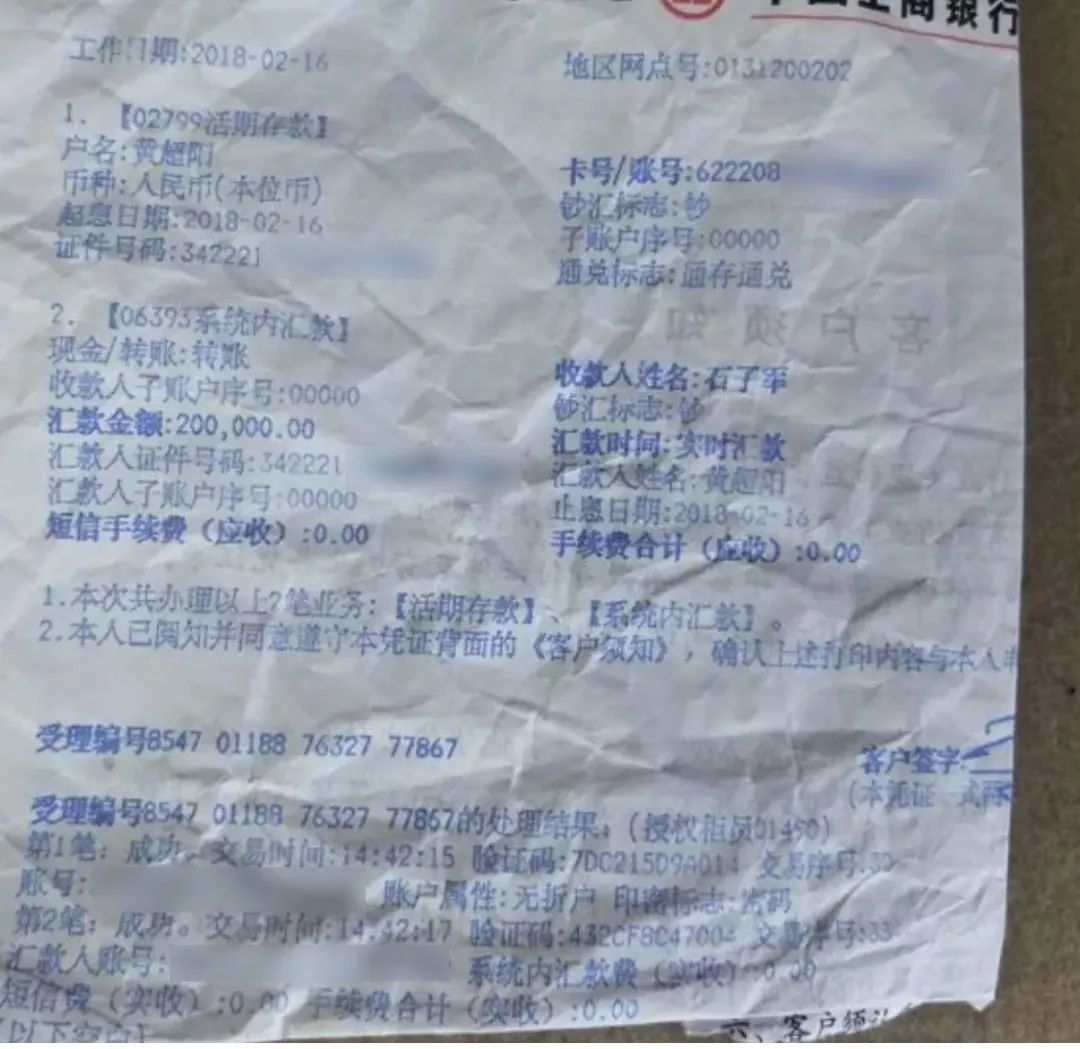 中国工商银行
工作日期:2018-02-16 地区网点号:0131200202
1. 【02799活期存款】
户名:黄超阳 卡号/账号:622208
币种:人民币(本位币) 钞汇标志:钞
起息日期:2018-02-16 子账户序号:00000
证件号码:342221 通兑标志:通存通兑
客户须知
2. 【06393系统内汇款】
现金/转账:转账 收款人姓名:石子军
收款人子账户序号:00000 钞汇标志:钞
汇款金额:200,000.00 汇款时间:实时汇款
汇款人证件号码:342221 汇款人姓名:黄超阳
汇款人子账户序号:00000 止息日期:2018-02-16
短信手续费(应收):0.00 手续费合计(应收):0.00
1.本次共办理以上2笔业务:【活期存款】、【系统内汇款】。
2.本人已阅知并同意遵守本凭证背面的《客户须知》,确认上述打印内容与本人
受理编号8547 01188 76327 77867
客户签字:
(本凭证一式两
受理编号8547 01188 76327 77867的处理结果:(授权柜员01490)
第1笔:成功。交易时间:14:42:15 验证码:7DC215D9A014 交易序号:
账号: 账户属性:无折户 印密标志:密码
第2笔:成功。交易时间:14:42:17 验证码:432CF8C47004 交易序号:
汇款人账号: 系统内汇款费(实收):0.00
短信费(实收):0.00 手续费合计(实收):0.00
(以下空白)
六、客户须认